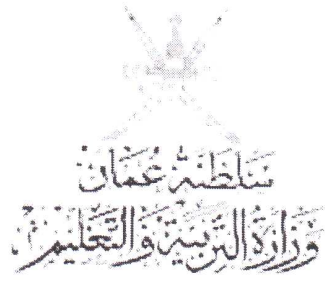 سلطنة عمان
وزارة التربية والتعليم